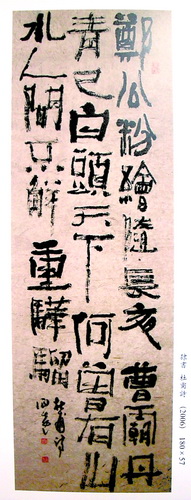 鄭公粉繪隨長夜曹霸丹
青已白頭天下何曾有山
水人間只解重驊騮
杜甫詩
隸書 杜甫詩 (2006) 180×57